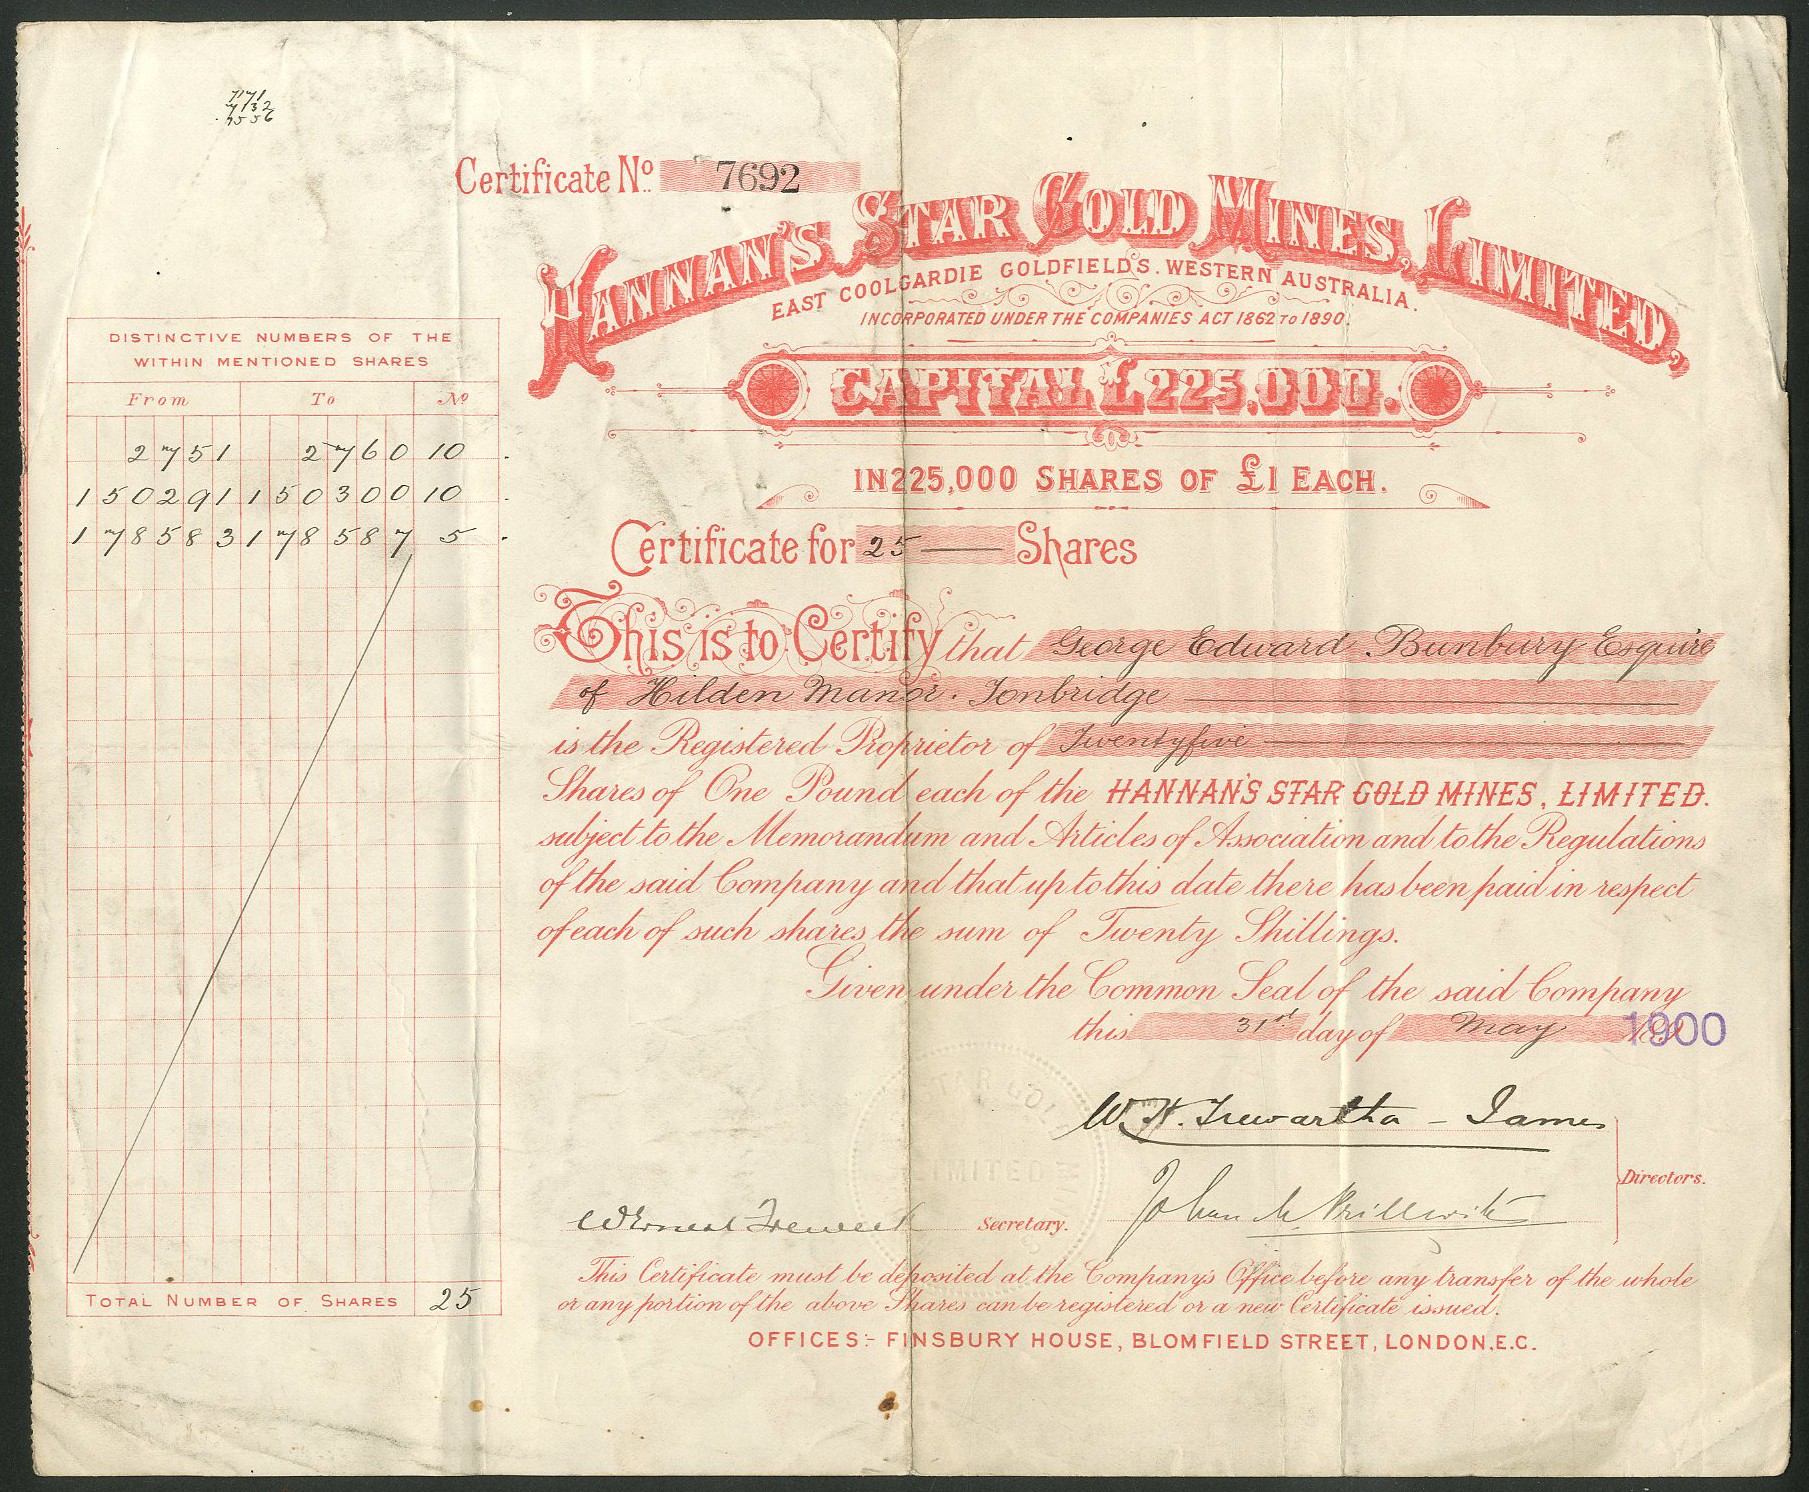 7171
7132
7556
Certificate No. 7692
HANNAN'S STAR GOLD MINES, LIMITED,
EAST COOLGARDIE GOLDFIELDS. WESTERN AUSTRALIA.
INCORPORATED UNDER THE COMPANIES ACT 1862 TO 1890.
CAPITAL £225.000.
IN 225,000 SHARES OF £1 EACH.
Certificate for 25 Shares
This is to Certify that George Edward Bunbury Esquire
of Hilden Manor. Tonbridge
is the Registered Proprietor of Twentyfive
Shares of One Pound each of the HANNAN'S STAR GOLD MINES, LIMITED.
subject to the Memorandum and Articles of Association and to the Regulations
of the said Company and that up to this date there has been paid in respect
of each of such shares the sum of Twenty Shillings.
Given under the Common Seal of the said Company
this 31st day of May 1900
W. H. Trewartha - James
Johan C. Prillwitz
Directors.
W Ernest Treweek Secretary.
STAR GOL
LIMITED
This Certificate must be deposited at the Company's Office before any transfer of the whole
or any portion of the above Shares can be registered or a new Certificate issued.
OFFICES:- FINSBURY HOUSE, BLOMFIELD STREET, LONDON. E.C.
DISTINCTIVE NUMBERS OF THE
WITHIN MENTIONED SHARES
From To No
2751 2760 10
150291 150300 10
178583 178587 5
TOTAL NUMBER OF SHARES 25